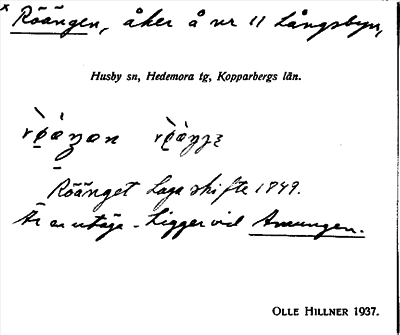 x Röängen, åker å nr 11 Långsbyn,
Husby sn, Hedemora tg, Kopparbergs län.
Röänget Laga skifte 1849.
Är en utäga - Ligger vid Amungen.
OLLE HILLNER 1937.